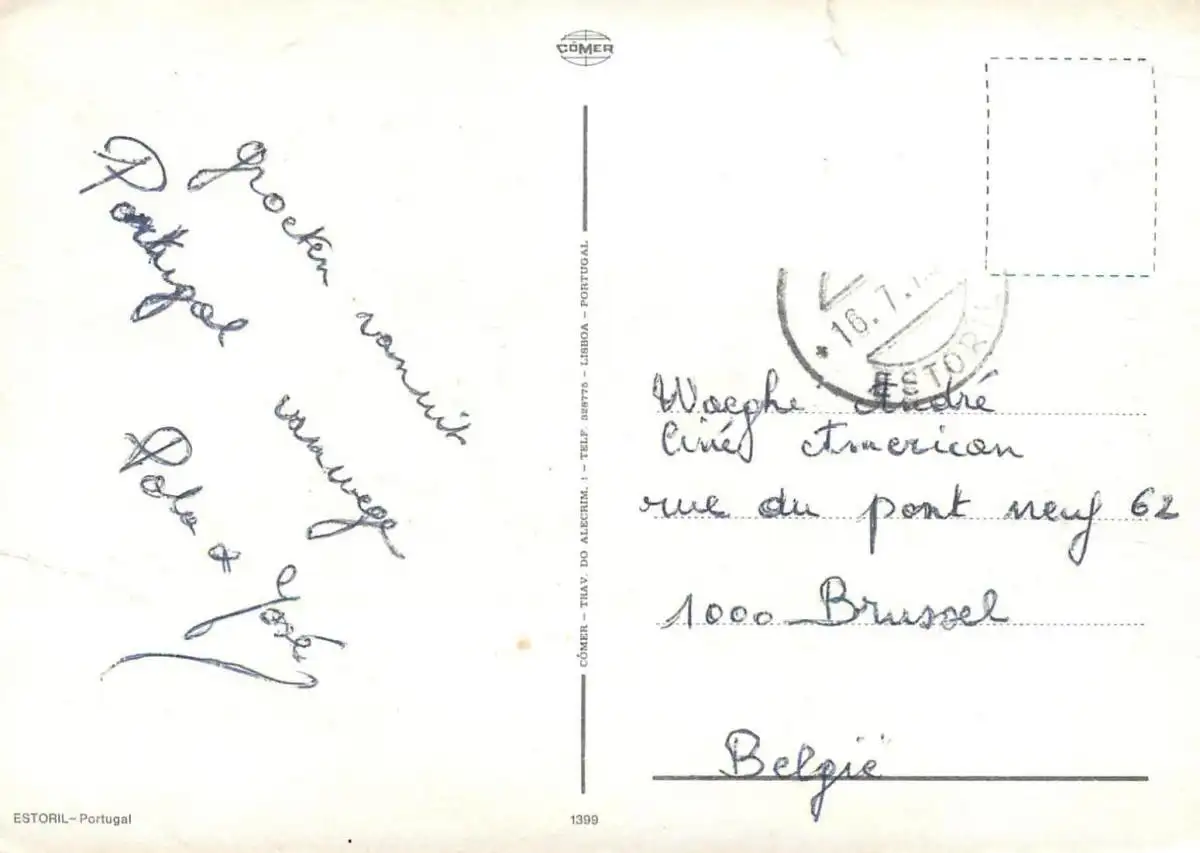 CÓMER
Groeten vanuit
Portugal
vanwege
Polo + José
CÓMER – TRAV. DO ALECRIM, 1 – TELF. 328775 – LISBOA – PORTUGAL
16.7.
ESTORIL
Woeghe André
Ciné American
rue du pont neuf 62
1000 Brussel
België
ESTORIL – Portugal
1399